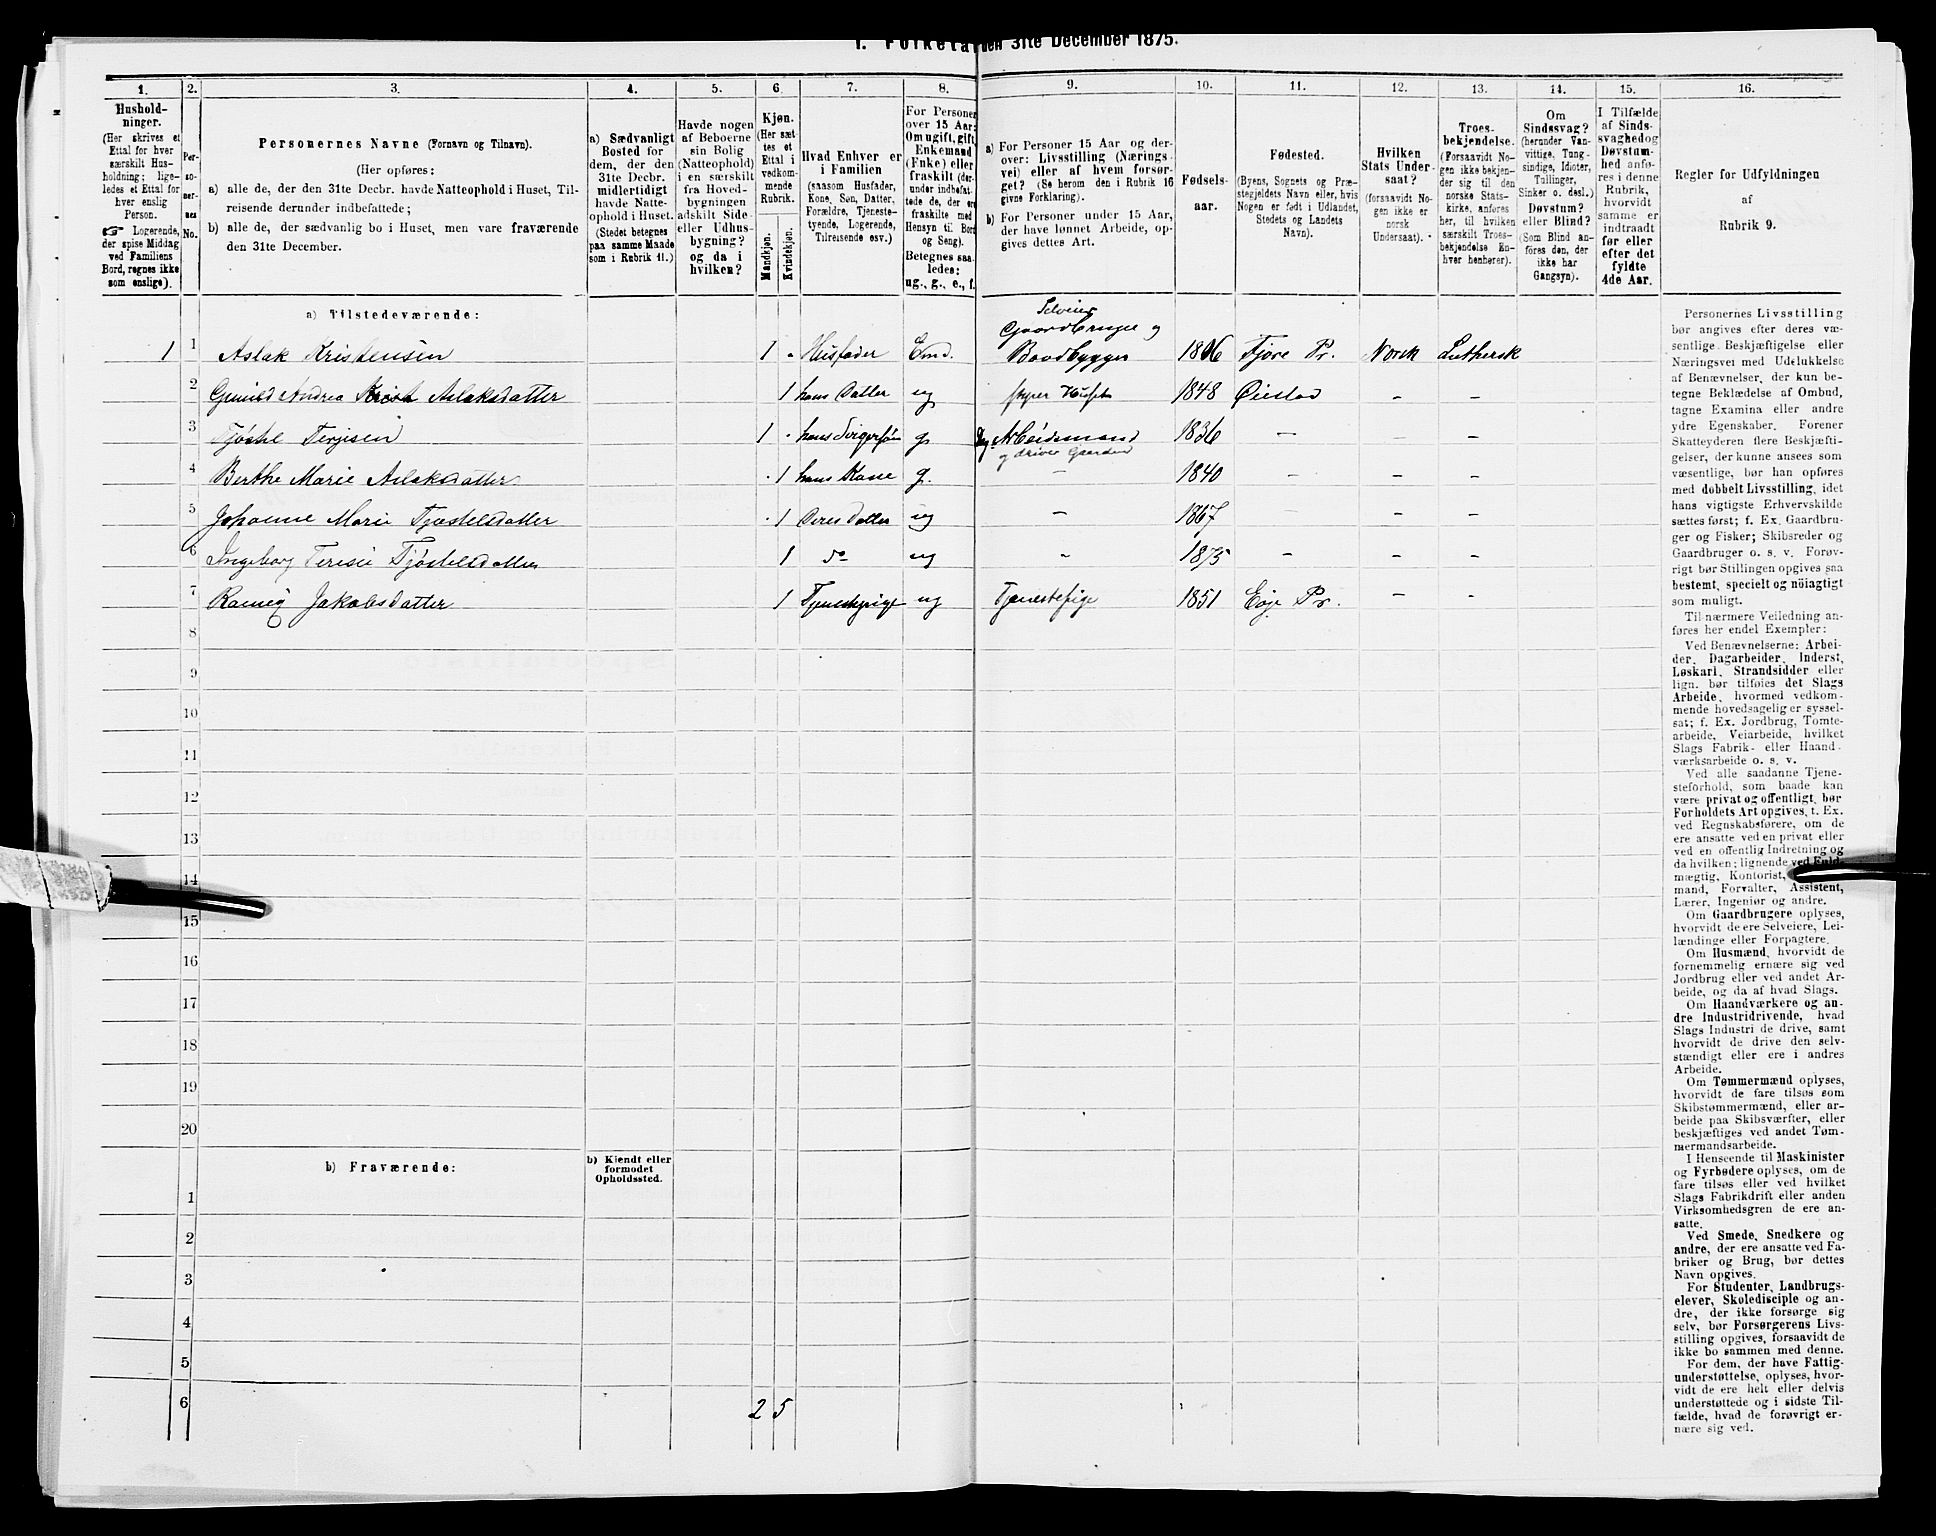 1. Folketal den 31te December 1875.
1.
Hushold-
ninger.
(Her skrives et
Ettal for hver
særskilt Hus-
holdning; lige-
ledes et Ettal for
hver enslig
Person.
Logerende,
der spise Middag
ved Familiens
Bord, regnes ikke
som enslige).
2.
Per-
so-
ner-
nes
No.
3.
Personernes Navne (Fornavn og Tilnavn).
(Her opføres:
a) alle de, der den 31te Decbr. havde Natteophold i Huset, Til-
reisende derunder indbefattede;
b) alle de, der sædvanlig bo i Huset, men vare fraværende
den 31te December.
4.
a) Sædvanligt
Bosted for
dem, der den
31te Decbr.
midlertidigt
havde Natte-
ophold i Huset.
(Stedet betegnes
paa samme Maade
som i Rubrik 11.)
5.
Havde nogen
af Beboerne
sin Bolig
(Natteophold)
i en særskilt
fra Hoved-
bygningen
adskilt Side-
eller Udhus-
bygning?
og da i
hvilken?
6.
Kjøn.
(Her sæt-
tes et
Ettal i
vedkom-
mende
Rubrik.
Mandkjøn.
Kvindekjøn.
7.
Hvad Enhver er
i Familien
(saasom Husfader,
Kone, Søn, Datter,
Forældre, Tjeneste-
tyende, Logerende,
Tilreisende osv.)
8.
For Personer
over 15 Aar:
Om ugift, gift,
Enkemand
(Enke) eller
fraskilt (der-
under indbefat-
tede de, der ere
fraskilte med
Hensyn til Bord
og Seng).
Betegnes saa-
ledes:
ug., g., e., f.
9.
a) For Personer 15 Aar og der-
over: Livsstilling (Nærings-
vei) eller af hvem forsør-
get? (Se herom den i Rubrik 16
givne Forklaring).
b) For Personer under 15 Aar,
der have lønnet Arbeide, op-
gives dettes Art.
10.
Fødsels-
aar.
11.
Fødested.
(Byens, Sognets og Præ-
stegjeldets Navn eller, hvis
Nogen er født i Udlandet,
Stedets og Landets
Navn).
12.
Hvilken
Stats Under-
saat?
(forsaavidt No-
gen ikke er
norsk
Undersaat).
13.
Troes-
bekjendelse.
(Forsaavidt No-
gen ikke bekjen-
der sig til den
norske Stats-
kirke, anføres
her, til hvilket
særskilt Troes-
bekjendelse En-
hver henhører).
14.
Om
Sindssvag?
(herunder Van-
vittige, Tung-
sindige, Idioter,
Tullinger,
Sinker o. desl.)
Døvstum?
eller Blind?
(Som Blind an-
føres den, der
ikke har
Gangsyn).
15.
I Tilfælde
af Sinds-
svaghed og
Døvstum-
hed anfø-
res i denne
Rubrik,
hvorvidt
samme er
indtraadt
før eller
efter det
fyldte
4de Aar.
16.
Regler for Udfyldningen
af
Rubrik 9.
a) Tilstedeværende:
Selveier
Gaardbruger og
1 1 Aslak Kristensen 1 Husfader Emd. Baadbygger 1806 Fjære Pr. Norsk Luthersk
2 Gunild Andrea Aslaksdatter 1 hans Datter ug styrer Huset 1848 Øiestad - -
3 Tjøstel Terjesen 1 hans Svigersøn g Dag Arbeidsmand 1836 - - -
og driver Gaarden
4 Berthe Marie Aslaksdatter 1 hans Kone g. - 1840 - -
5 Johanne Marie Tjøstelsdatter 1 Deres Datter ug - 1867 - - -
6 Ingeborg Teresie Tjøstelsdatter 1 do ug " 1875 - - -
7 Jakobsdatter 1 Tjenestepige ug Tjenestepige 1851 Evje Pr. - -
8
9
10
11
12
13
14
15
16
17
18
19
20
b) Fraværende:
b) Kiendt eller
formodet
Opholdssted.
1
2
3
4
5
6
2 5
Personernes Livsstilling
bør angives efter deres væ-
sentlige Beskjæftigelse eller
Næringsvei med Udelukkelse
af Benævnelser, der kun be-
tegne Beklædelse af Ombud,
tagne Examina eller andre
ydre Egenskaber. Forener
Skatteyderen flere Beskjæfti-
gelser, der kunne ansees som
væsentlige, bør han opføres
med dobbelt Livsstilling, idet
hans vigtigste Erhvervskilde
sættes først; f. Ex. Gaardbru-
ger og Fisker; Skibsreder og
Gaardbruger o. s. v. Forøv-
rigt bør Stillingen opgives saa
bestemt, specielt og nöiagtigt
som muligt.
Til nærmere Veiledning an-
føres her endel Exempler:
Ved Benævnelserne: Arbei-
der, Dagarbeider, Inderst,
Løskarl, Strandsidder eller
lign. bør tilføies det Slags
Arbeide, hvormed vedkom-
mende hovedsagelig er syssel-
sat; f. Ex. Jordbrug, Tomte-
arbeide, Veiarbeide, hvilket
Slags Fabrik- eller Haand-
værksarbeide o. s. v.
Ved alle saadanne Tjene-
steforhold, som baade kan
være privat og offentligt, bør
Forholdets Art opgives, t. Ex.
ved Regnskabsførere, om de
ere ansatte ved en privat eller
ved en offentlig Indretning og
da hvilken; lignende ved Fuld-
mægtig, Kontorist,
mand, Forvalter, Assistent,
Lærer, Ingeniør og andre.
Om Gaardbrugere oplyses,
hvorvidt de ere Selveiere, Lei-
lændinge eller Forpagtere.
Om Husmænd, hvorvidt de
fornemmelig ernære sig ved
Jordbrug eller ved andet Ar-
beide, og da af hvad Slags.
Om Haandværkere og an-
dre Industridrivende, hvad
Slags Industri de drive, samt
hvorvidt de drive den selv-
stændigt eller ere i andres
Arbeide.
Om Tømmermænd oplyses,
hvorvidt de fare tilsøs som
Skibstømmermænd, eller ar-
beide paa Skibsværfter, eller
beskjæftiges ved andet Tøm-
mermandsarbeide.
I Henseende til Maskinister
og Fyrbødere oplyses, om de
fare tilsøs eller ved hvilket
Slags Fabrikdrift eller anden
Virksomhedsgren de ere an-
satte.
Ved Smede, Snedkere og
andre, der ere ansatte ved Fa-
briker og Brug, bør dettes
Navn opgives.
For Studenter, Landbrugs-
elever, Skoledisciple og an-
dre, der ikke forsørge sig
selv, bør Forsørgerens Livs-
stilling opgives, forsaavidt de
ikke bo sammen med denne.
For dem, der have Fattig-
understøttelse, oplyses, hvor-
vidt de ere helt eller delvis
understøttede og i sidste Til-
fælde, hvad de forøvrigt er-
nære sig ved.